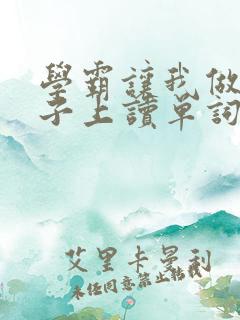 學霸讓我做
子上讀單詞
艾里卡曼利
未经同意禁止转载